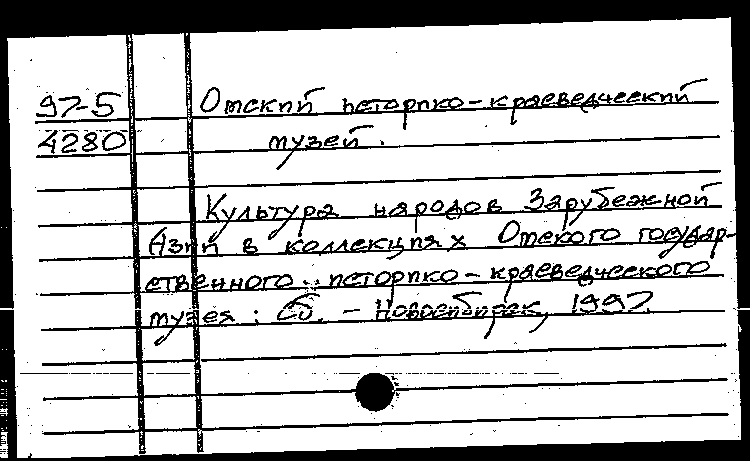 97-5 Омский историко-краеведческий
4280 музей.
Культура народов Зарубежной
Азии в коллекциях Омского государ-
ственного историко-краеведческого
музея: Сб. - Новосибирск, 1997.